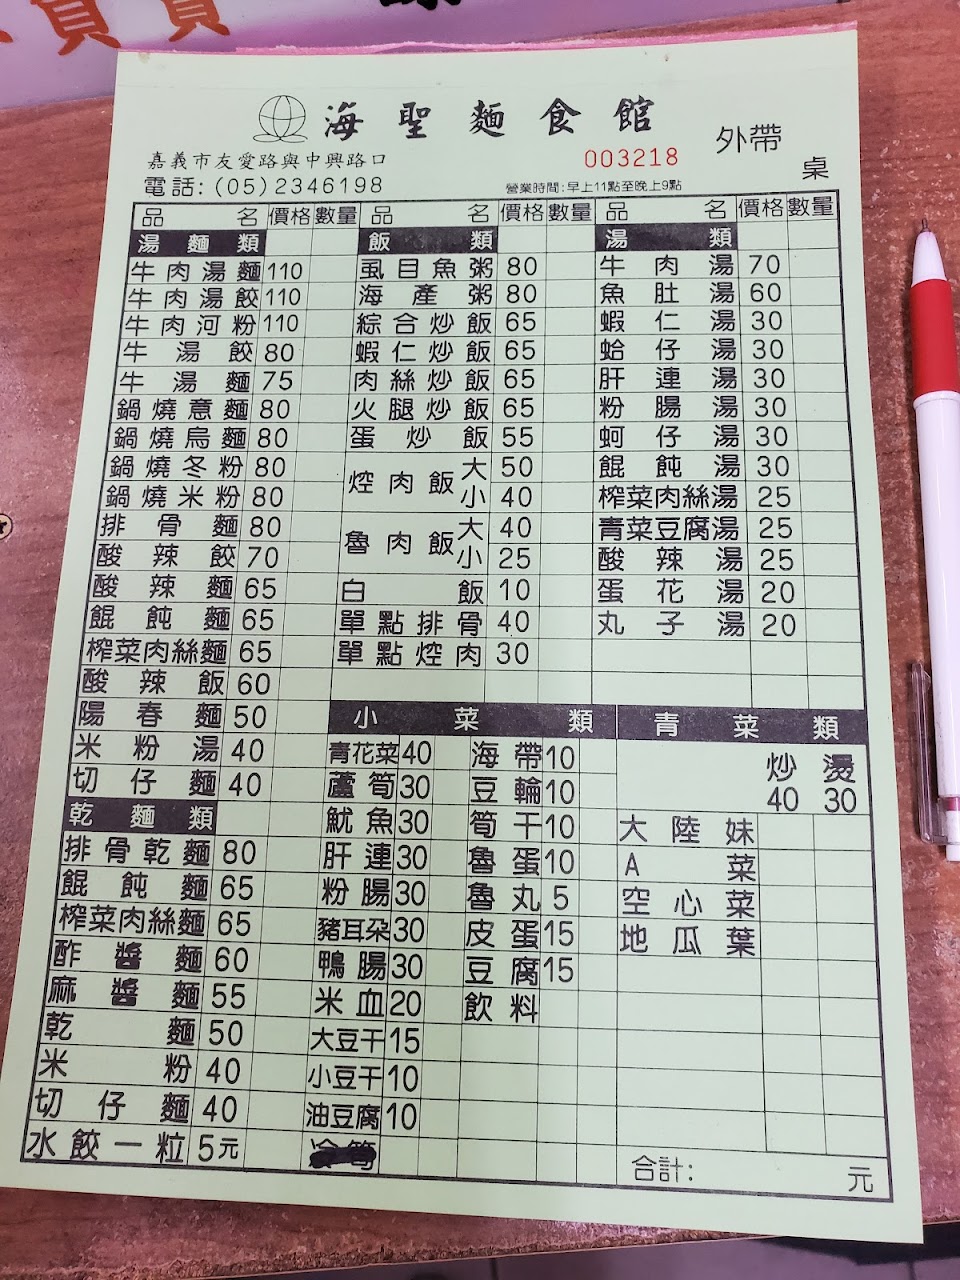 海聖麵食館
嘉義市友愛路與中興路口
003218
外帶
電話:(05)2346198
營業時間:早上11點至晚上9點
桌
品名 價格 數量 品名 價格 數量 品名 價格 數量
湯麵類
牛肉湯麵 110
牛肉湯餃 110
牛肉河粉 110
牛湯餃 80
牛湯麵 75
鍋燒意麵 80
鍋燒烏麵 80
鍋燒冬粉 80
鍋燒米粉 80
排骨麵 80
酸辣餃 70
酸辣麵 65
餛飩麵 65
榨菜肉絲麵 65
酸辣飯 60
陽春麵 50
米粉湯 40
切仔麵 40
乾麵類
排骨乾麵 80
餛飩麵 65
榨菜肉絲麵 65
酢醬麵 60
麻醬麵 55
乾麵 50
米粉 40
切仔麵 40
水餃一粒 5元
飯類
虱目魚粥 80
海產粥 80
綜合炒飯 65
蝦仁炒飯 65
肉絲炒飯 65
火腿炒飯 65
蛋炒飯 55
焢肉飯 大 50
小 40
魯肉飯 大 40
小 25
白飯 10
單點排骨 40
單點焢肉 30
湯類
牛肉湯 70
魚肚湯 60
蝦仁湯 30
蛤仔湯 30
肝連湯 30
粉腸湯 30
蚵仔湯 30
餛飩湯 30
榨菜肉絲湯 25
青菜豆腐湯 25
酸辣湯 25
蛋花湯 20
丸子湯 20
小菜類
青花菜 40
蘆筍 30
魷魚 30
肝連 30
粉腸 30
豬耳朵 30
鴨腸 30
米血 20
大豆干 15
小豆干 10
油豆腐 10
海帶 10
豆輪 10
筍干 10
魯蛋 10
魯丸 5
皮蛋 15
豆腐 15
飲料
青菜類
炒 燙
40 30
大陸妹
A菜
空心菜
地瓜葉
合計: 元